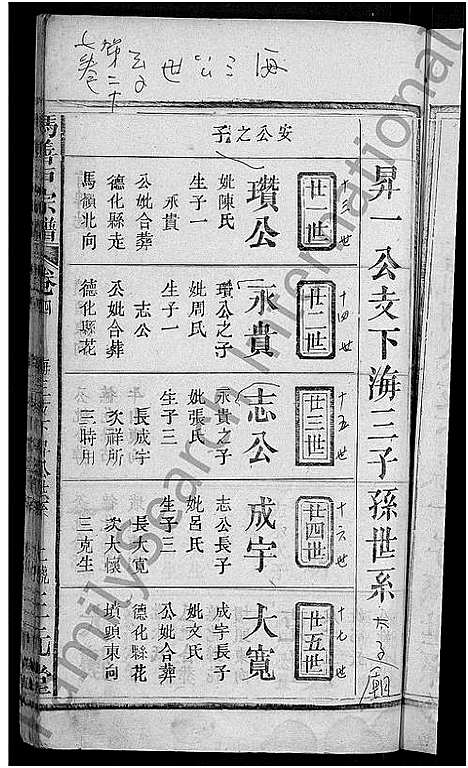 海三公世
卷第二十七
昇一公支下海三子孫世系
安公之子
十三世
廿一世
瓚公
妣陳氏
生子一
永貴
公妣合葬
德化縣走
馬嶺北向
十四世
廿二世
永貴
瓚公之子
妣周氏
生子一
志公
公妣合葬
德化縣花
十五世
廿三世
志公
永貴之子
妣張氏
生子三
長成宇
次祥所
三時用
十六世
廿四世
成宇
志公長子
妣呂氏
生子三
長大寬
次大懷
三克生
十七世
廿五世
大寬
成宇長子
妣文氏
公妣合葬
德化縣花
墳頭東向
宗譜
卷四
FamilySearch International